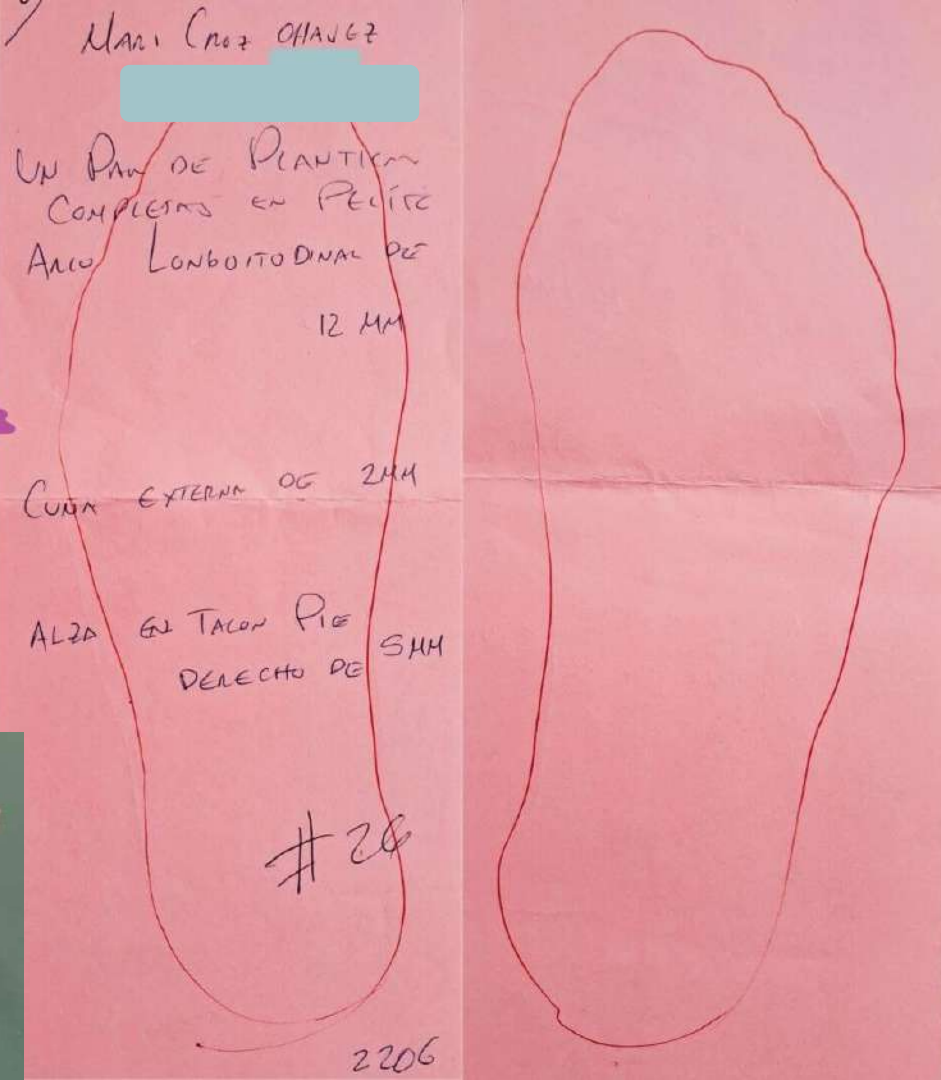 Mari Cruz CHAVEZ
UN PAR DE PLANTILLAS
COMPLETAS EN PELITE
ARCO LONGOITODINAL DE
12 MM
CUÑA EXTERNA DE 2MM
ALZA EN TALON PIE
DERECHO DE 5MM
#26
2206